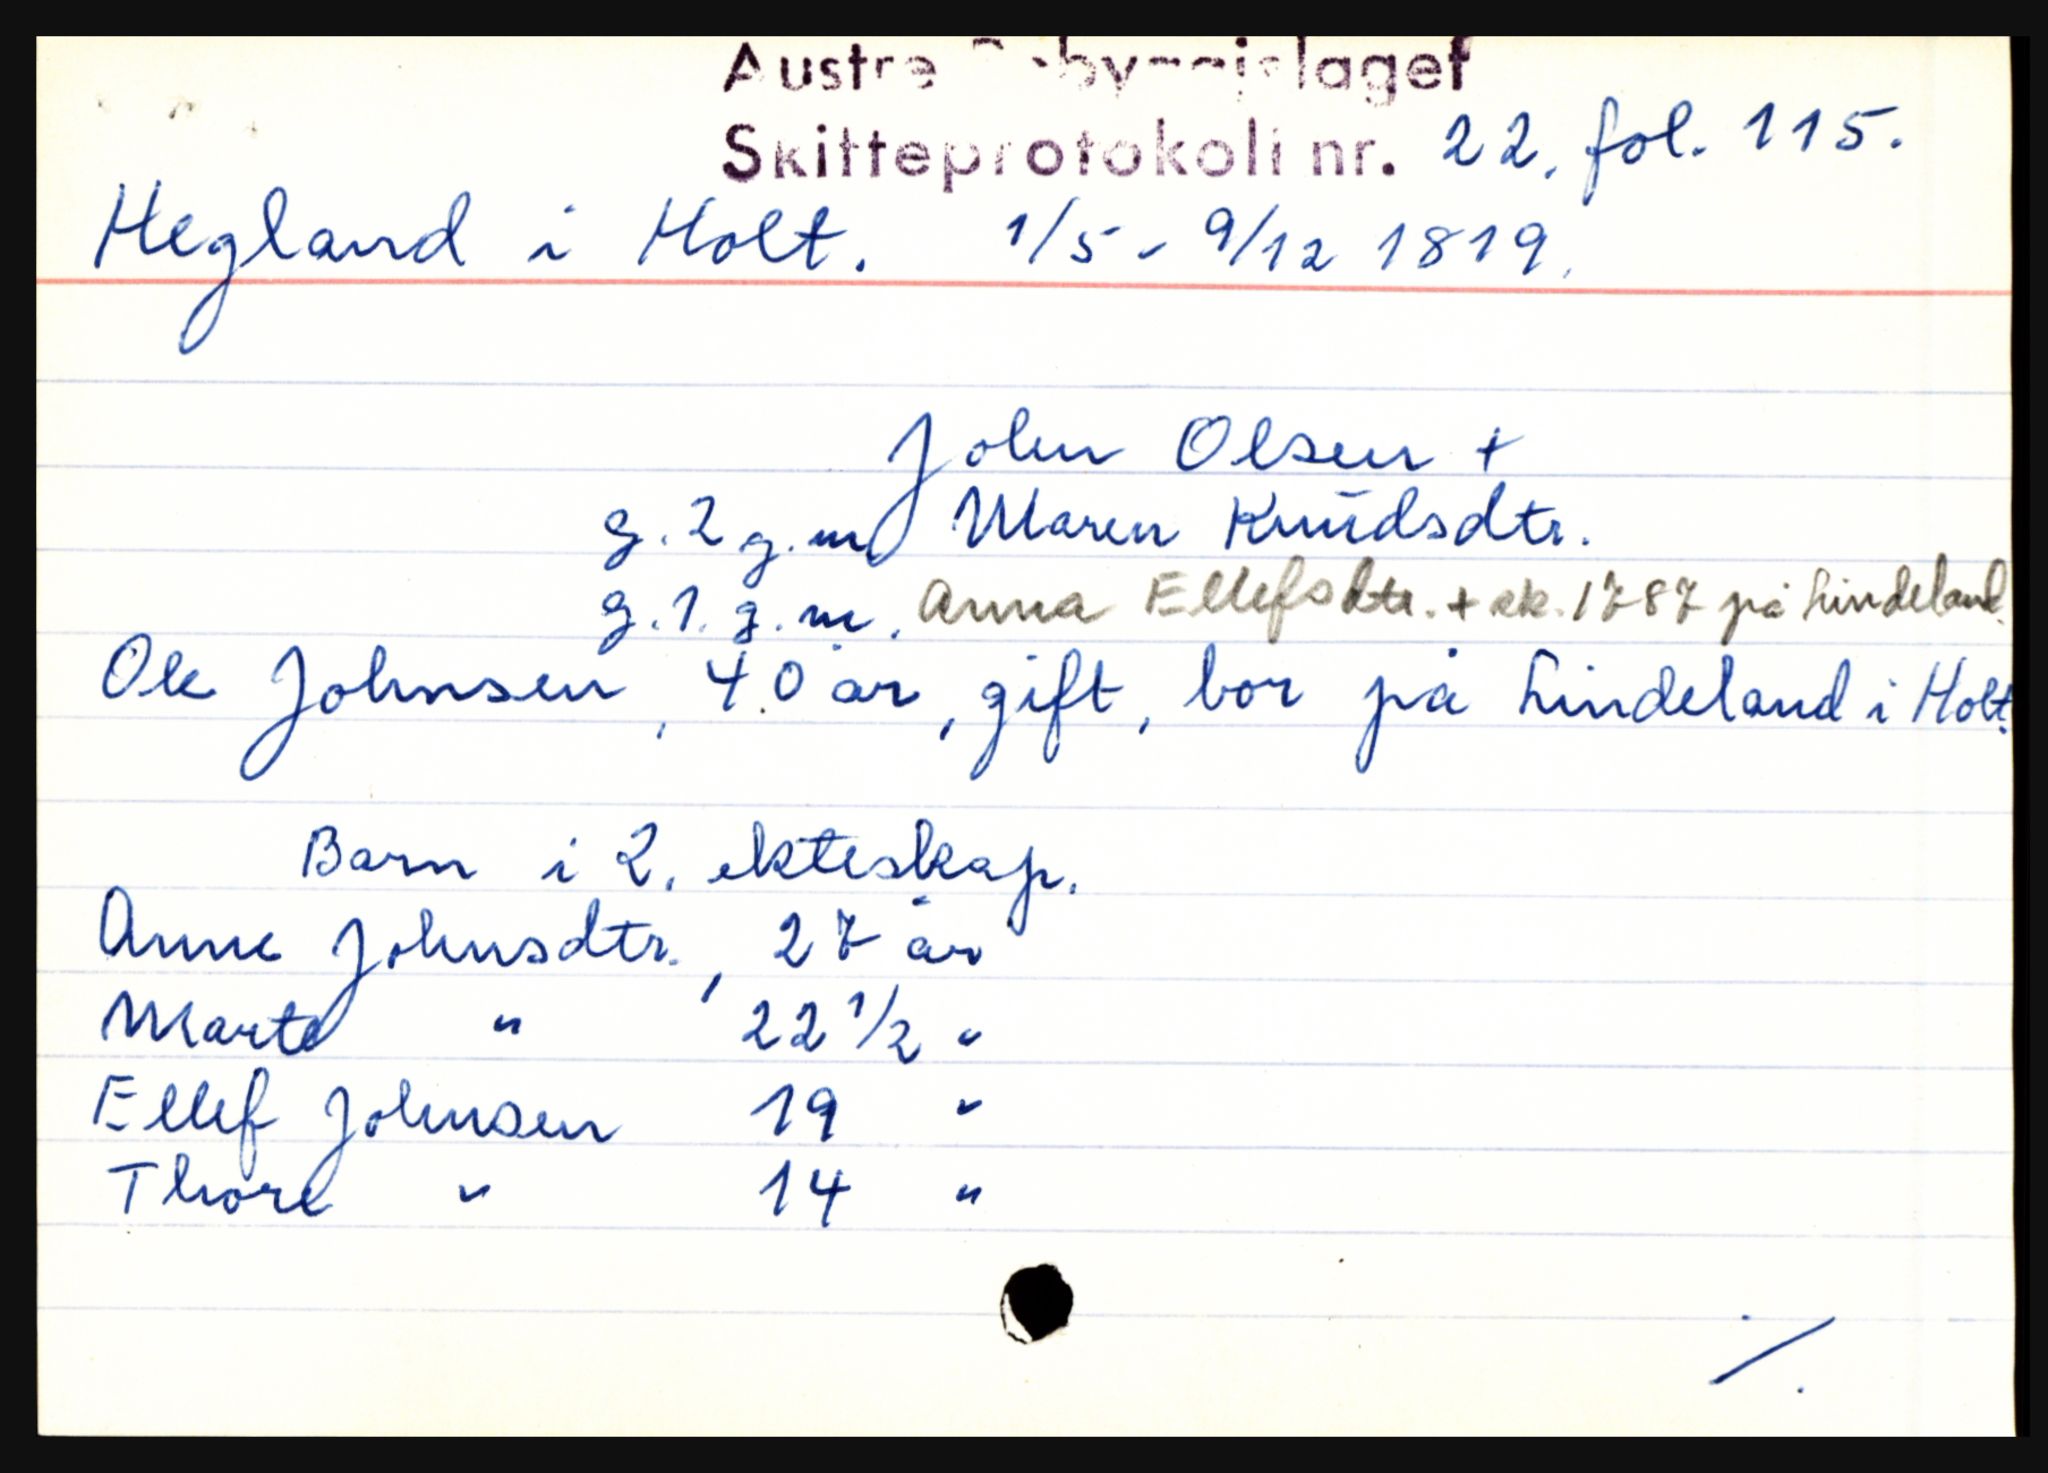 Austre Råbyggjelaget
Skifteprotokoll nr. 22. fol. 115.
Hegland i Holt. 1/5 - 9/12 1819.
John Olsen +
g. 2 g. m Maren Knudsdtr.
g. 1. g. m. Anna Ellefsdtr. + sk. 1787 på Lindeland.
Ole Johnsen, 40 år, gift, bor på Lindeland i Holt.
Barn i 2. ekteskap.
Anne Johnsdtr., 27 år
Marte " 22 1/2 "
Ellef Johnsen 19 "
Thore " 14 "
./.